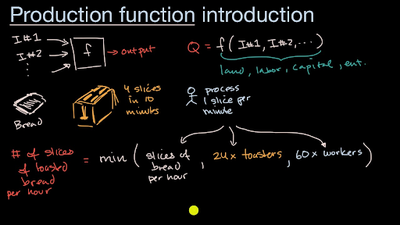 Production function introduction
I#1
I#2
f
output
Q = f(I#1, I#2, ...)
land, labor, capital, ent.
Bread
4 slices
in 10
minutes
process
1 slice per
minute
# of slices
of toasted
bread
per hour
= min ( slices of
bread
per hour
, 24 x toasters, 60 x workers )